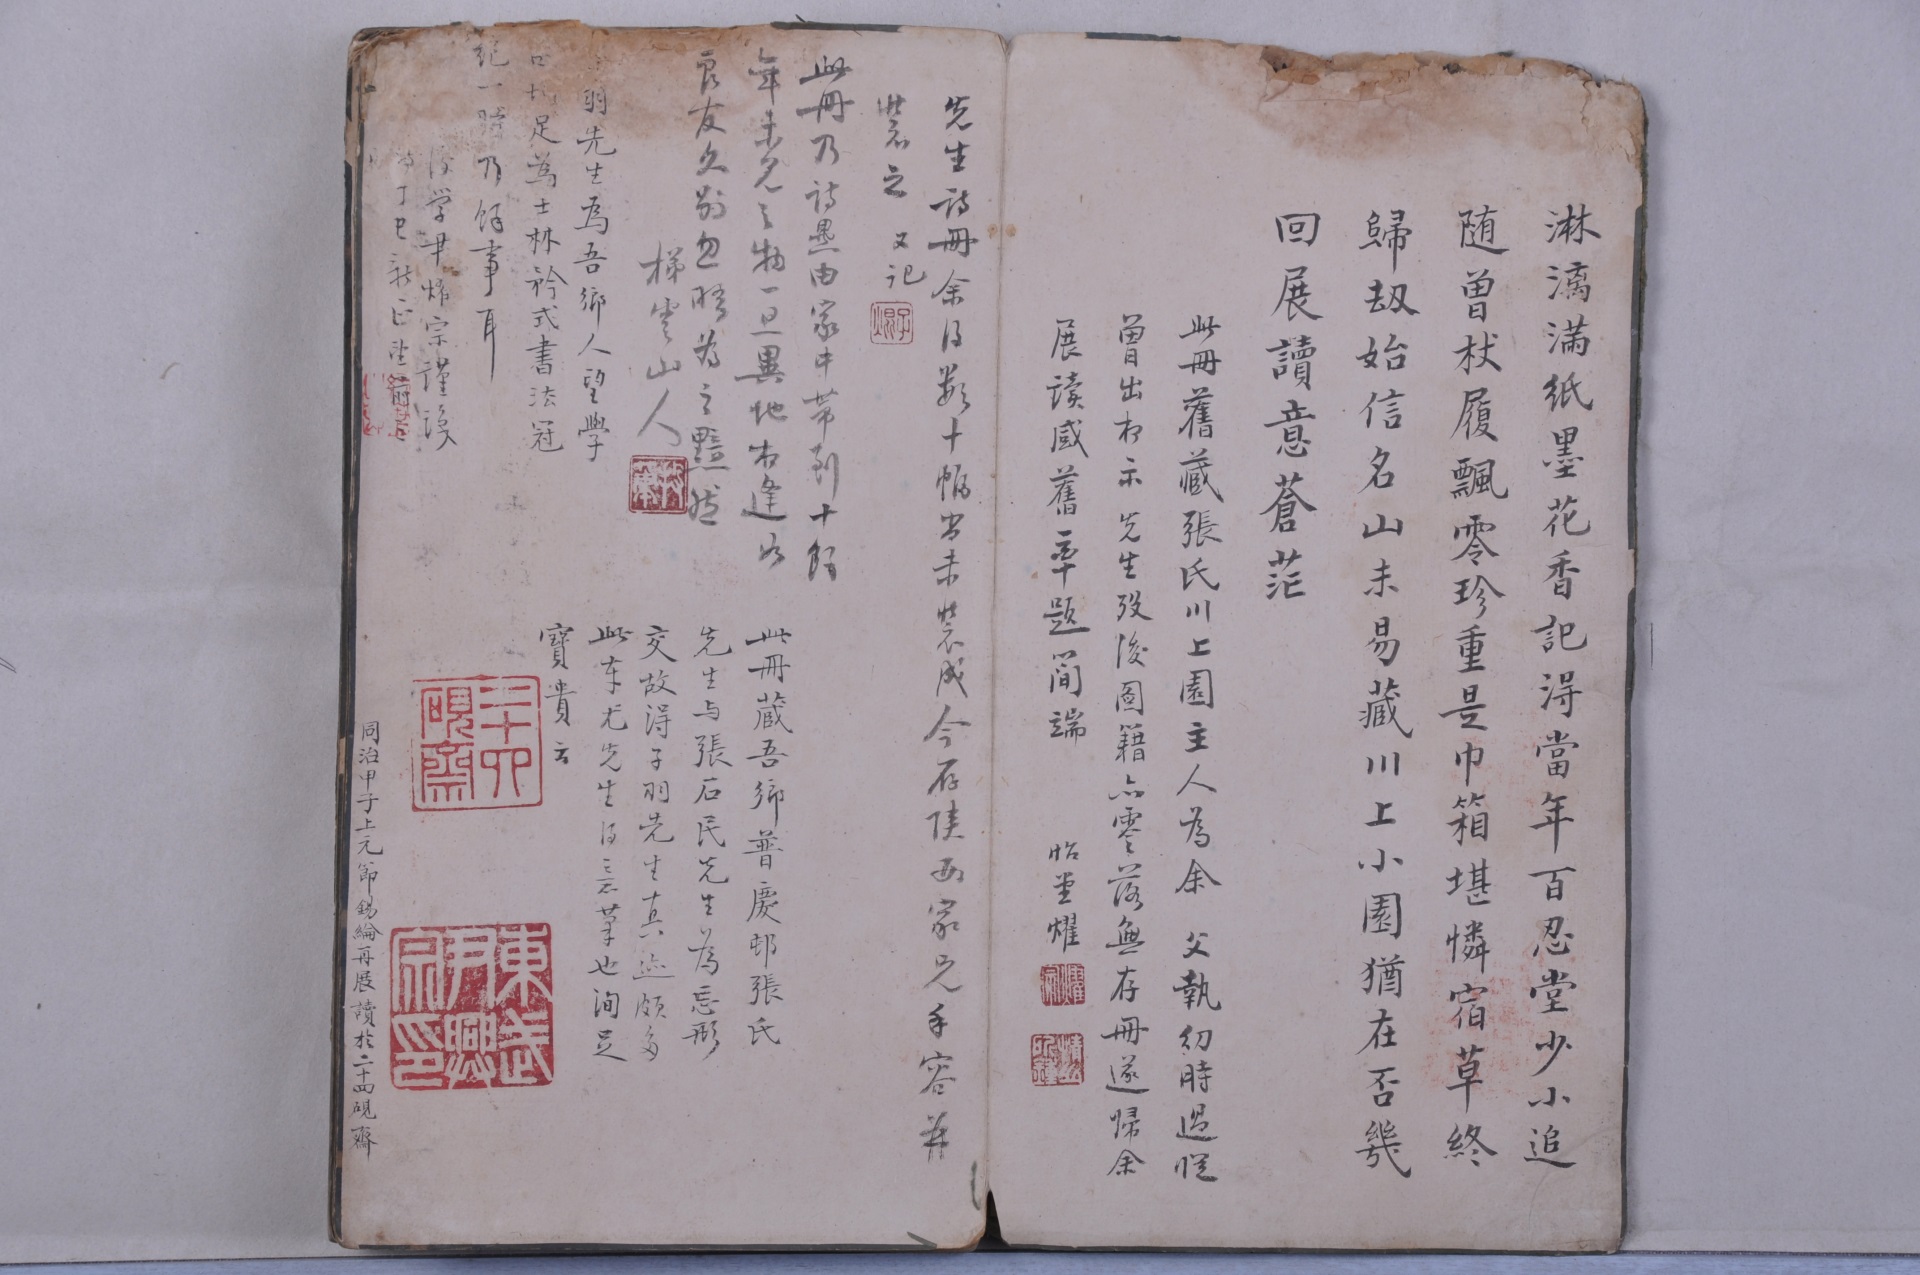 淋漓滿紙墨花香記得當年百忍堂少小追
随曾杖履飄零珍重是巾箱堪憐宿草終
歸劫始信名山未易藏川上小園猶在否幾
回展讀意蒼茫
此冊舊藏張氏川上園主人為余父執幼時過從
曾出相示先生歿後圖籍亦零落無存冊遂歸余
展讀感舊率題簡端
昭堂燿
先生詩冊余得數十幅尚未裝成今存陝西家兄手容并
裝之又記
此冊乃詩墨由家中帶到十餘
年未見之物一旦異地相逢如
良友久別忽晤為之黯然
梯雲山人
羽先生為吾鄉人望學
足為士林矜式書法冠
紀一時乃餘事耳
後學尹燿宗謹識
丁巳新正
此冊藏吾鄉普慶邨張氏
先生与張石民先生為忘形
交故得子羽先生真迹頗多
此本尤先生得意筆也洵足
寶貴云
二十四硯齋
東武尹興宗印
同治甲子上元節錫綸再展讀於二十四硯齋